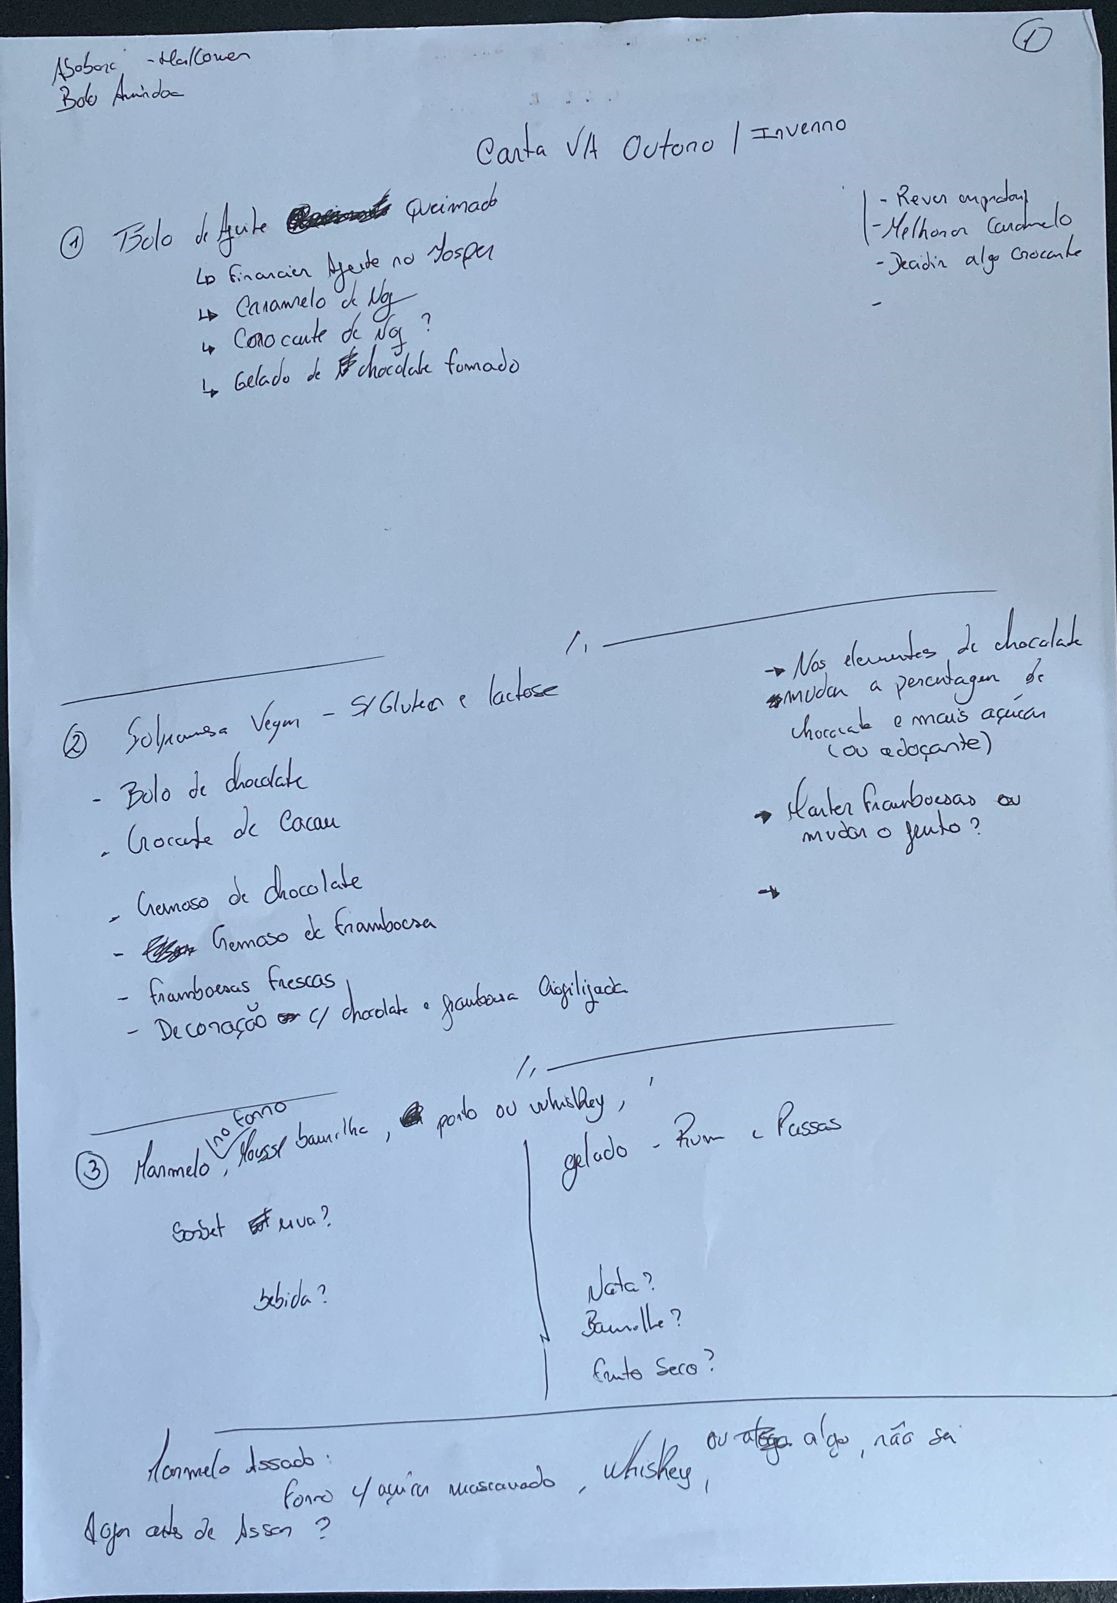 ①
Halloween
Bolo Amêndoa
Carta VA Outono / Inverno
① Bolo de Azeite Queimado
↳ Financier Azeite no Josper
↳ Caramelo de Noz
↳ Crocante de Noz ?
↳ Gelado de chocolate fumado
- Rever
- Melhorar Caramelo
- Decidir algo Crocante
-
② Sobremesa Vegan - S/ Gluten e lactose
- Bolo de chocolate
- Crocante de Cacau
- Cremoso de chocolate
- Cremoso de framboesa
- framboesas frescas
- Decoração c/ chocolate e framboesa liofilizada
→ Nos elementos de chocolate
mudar a percentagem de
chocolate e mais açúcar
(ou adoçante)
→ Manter framboesas ou
mudar o fruto?
→
③ Marmelo, Mousse baunilha, porto ou whiskey,
no forno
Sorbet uva?
bebida?
gelado - Rum e Passas
Nata?
Baunilha?
fruto Seco?
Marmelo Assado:
forno c/ açúcar mascavado, whiskey, ou algo, não sei
antes de Assar ?